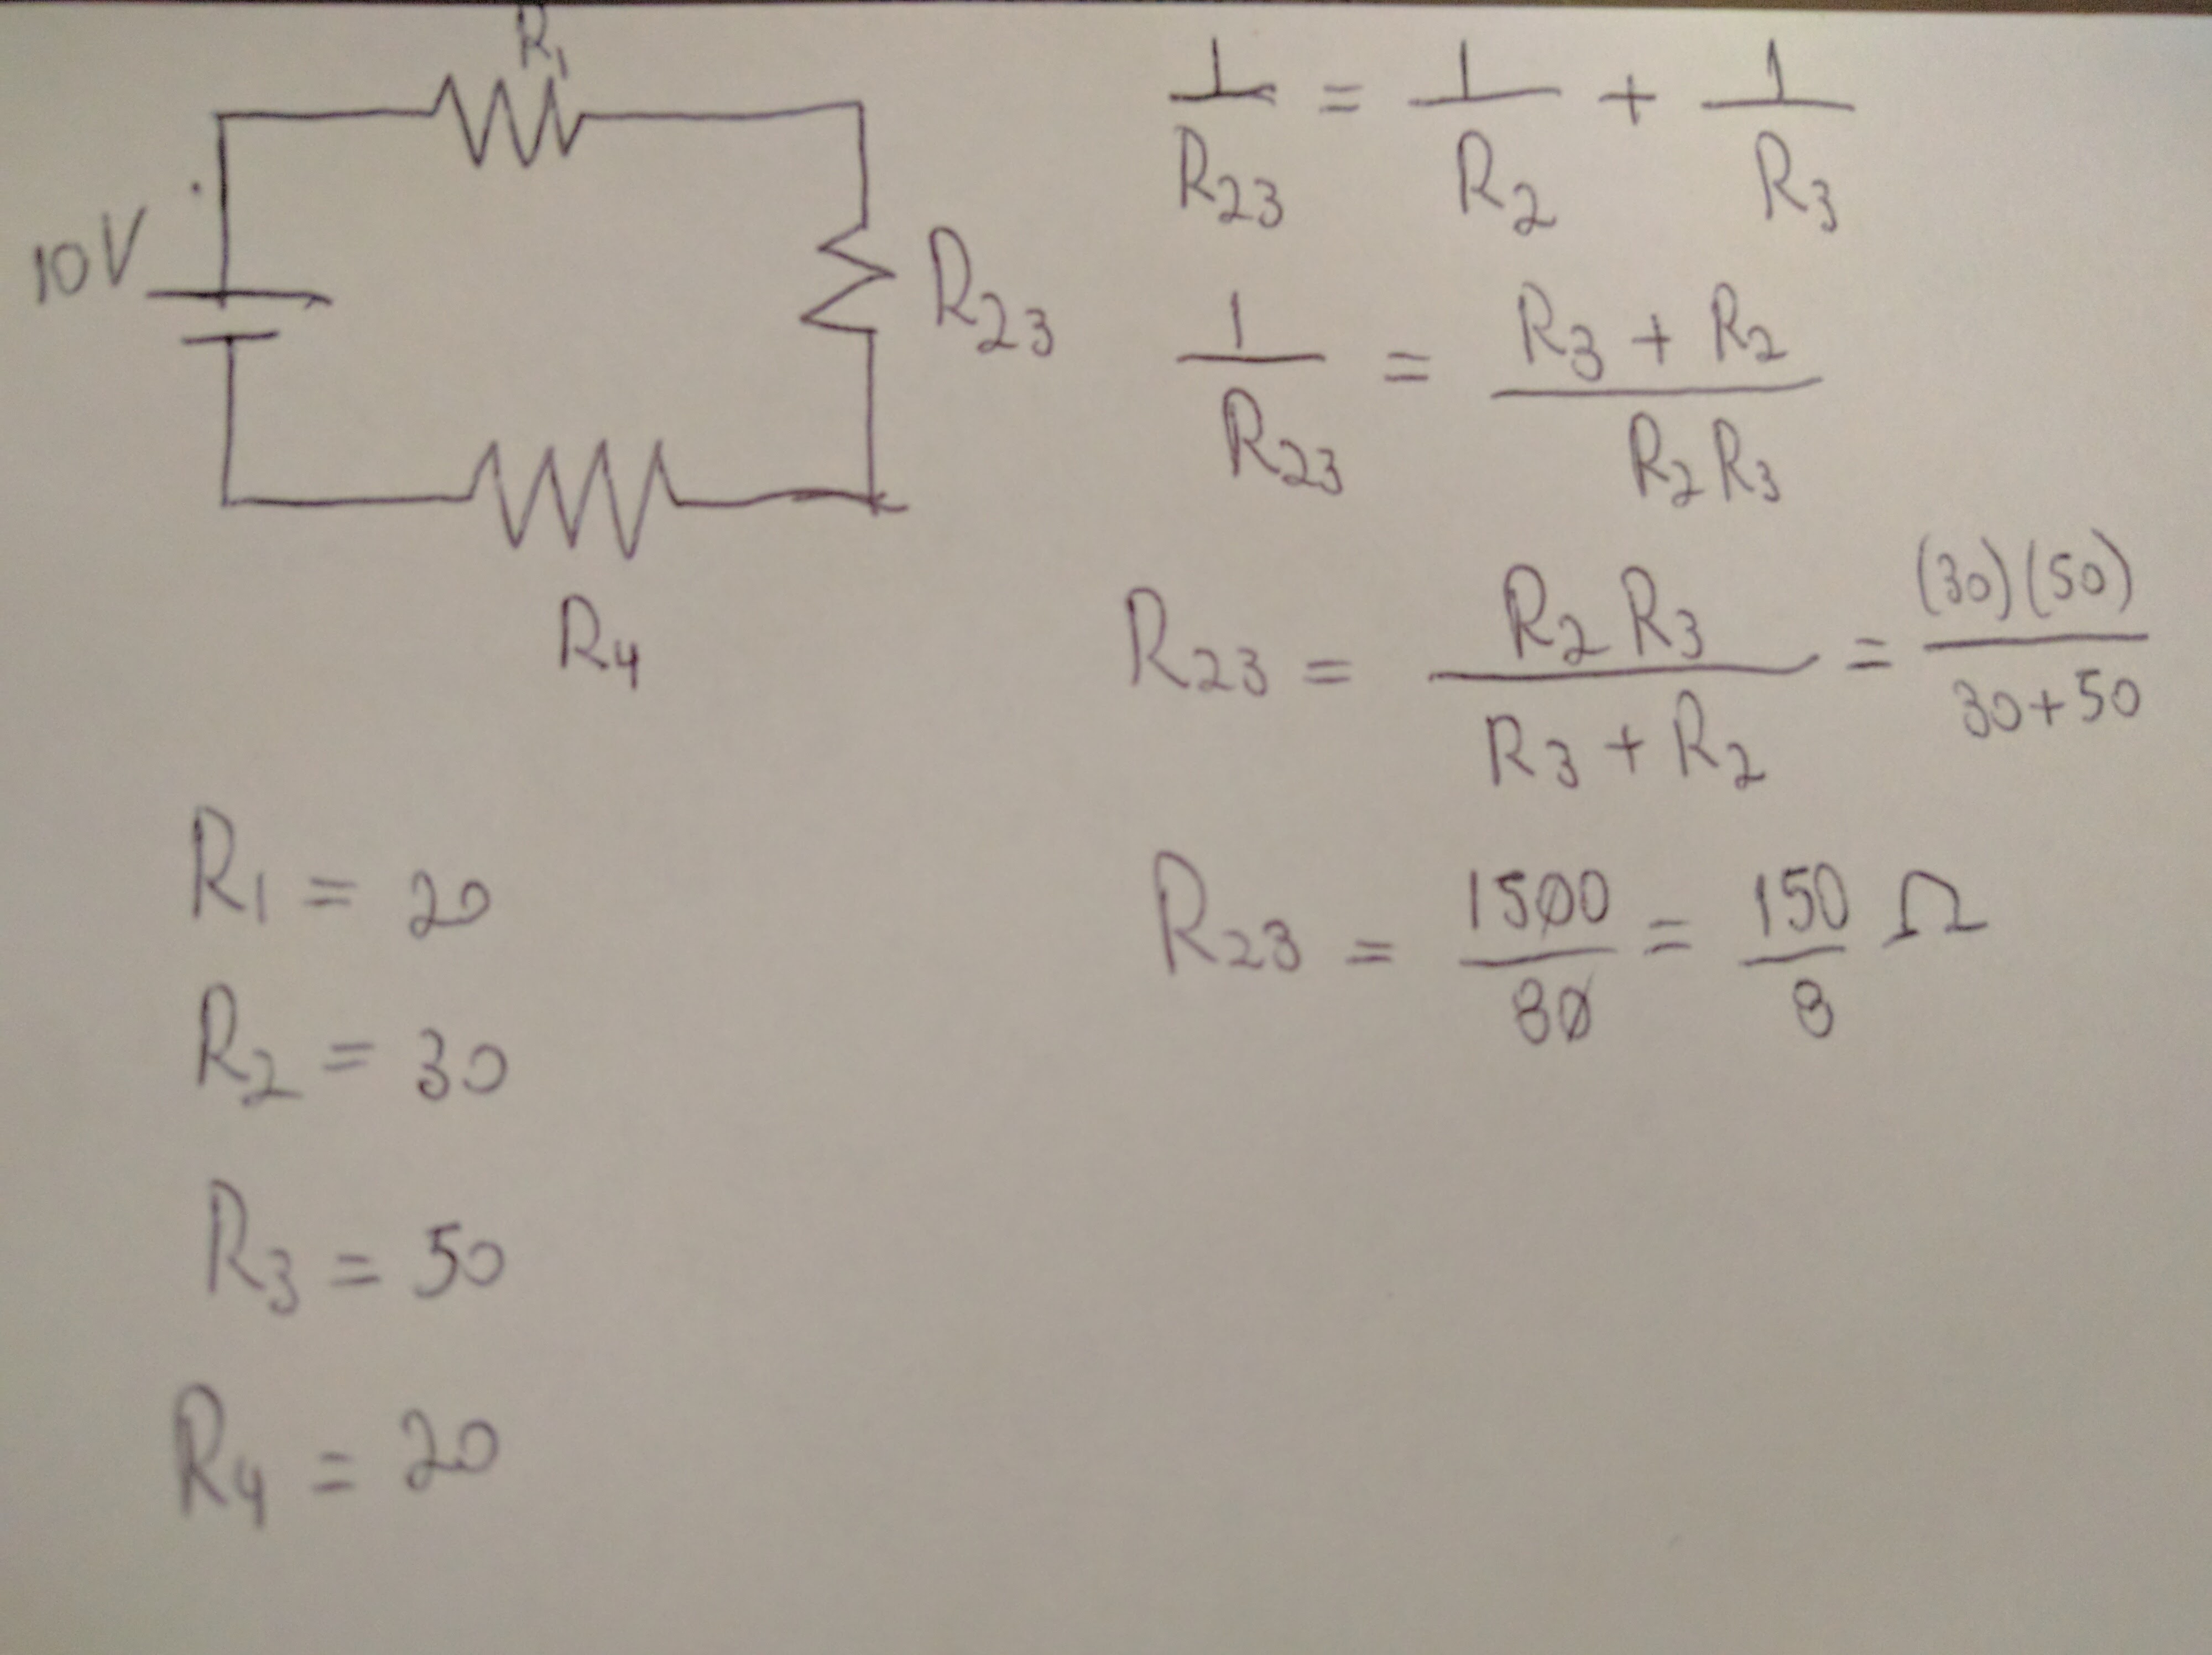 R1
10V
R23
R4
R1 = 20
R2 = 30
R3 = 50
R4 = 20
1/R23 = 1/R2 + 1/R3
1/R23 = (R3 + R2)/(R2 R3)
R23 = (R2 R3)/(R3 + R2) = (30)(50)/(30+50)
R23 = 1500/80 = 150/8 Ω